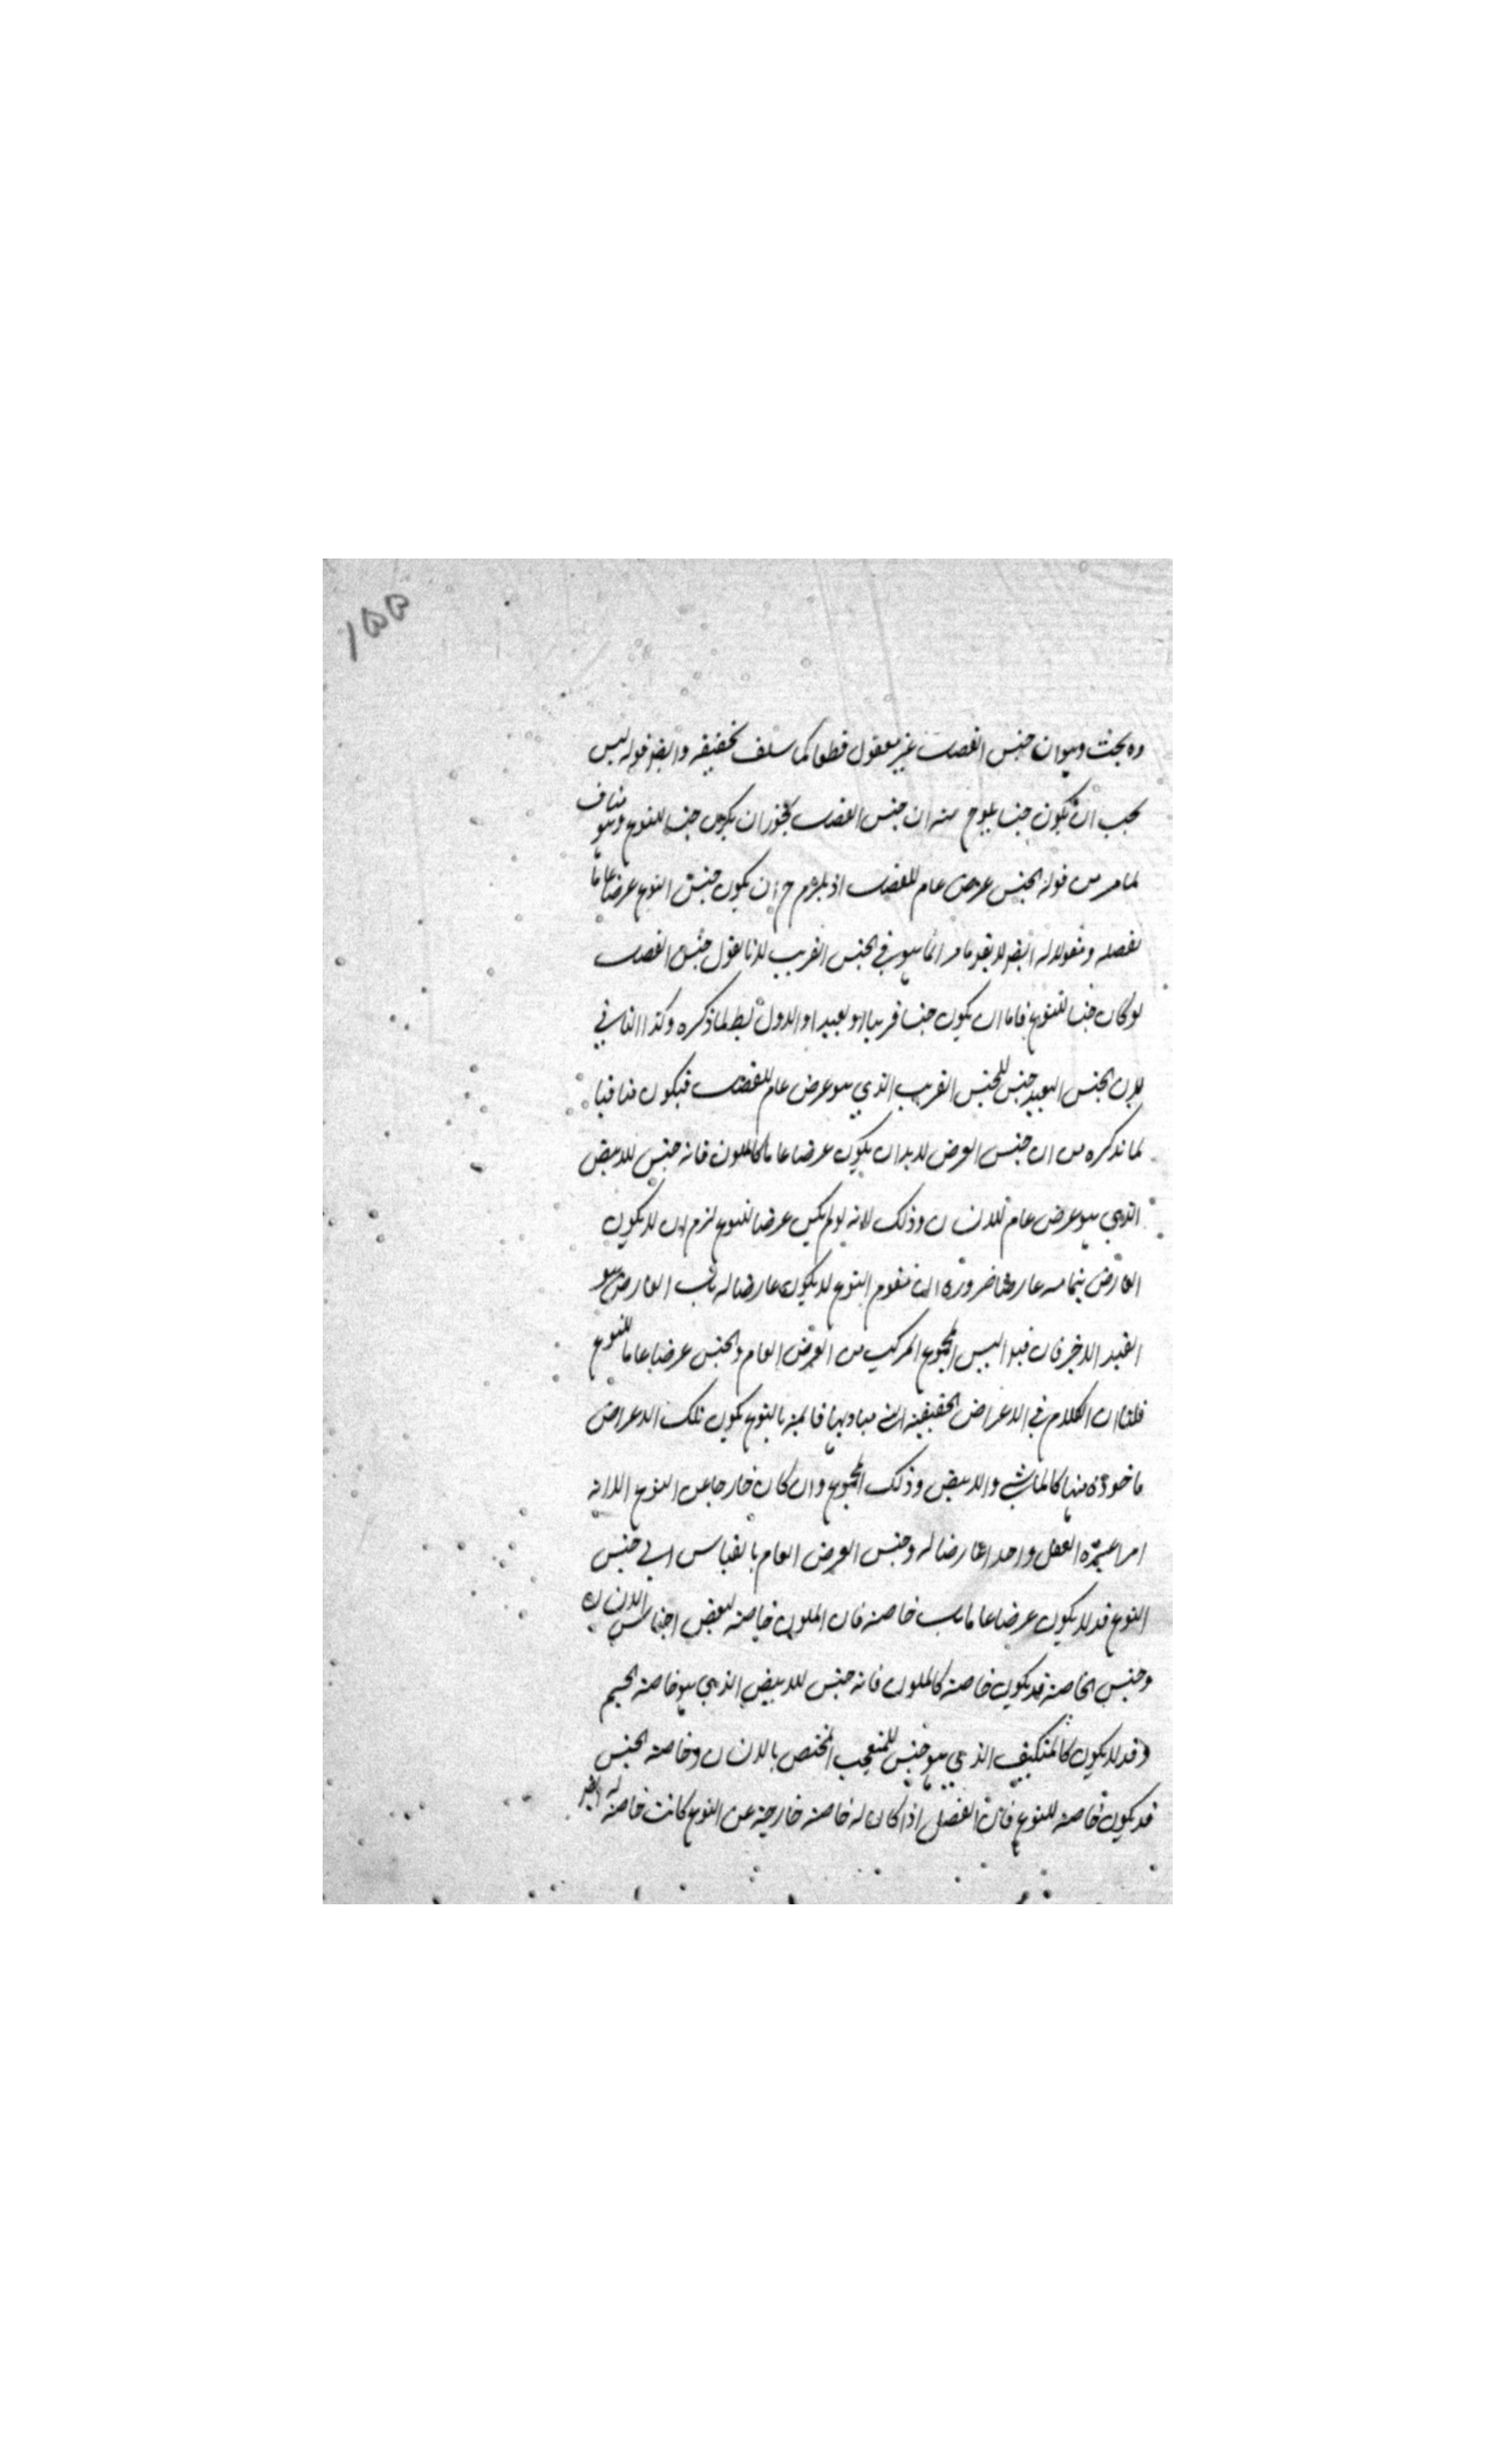 ١٥٥
وه بحث وهو ان جنس الفصل غير معقول قطعا كما سلف تحقيقه وايض قوله ليس
يجب ان يكون جنسا يلوح منه ان جنس الفصل يجوز ان يكون جنسا للنوع وهو مناف
لما مر من قوله الجنس عرض عام للفصل اذ يلزم ح ان يكون جنس النوع عرضا عاما
لفصله ومقولا له ايض لا يقر ما مر انما هو في الجنس القريب لانا نقول جنس الفصل
لو كان جنسا للنوع فاما ان يكون جنسا قريبا او بعيدا والاول بط لما ذكره وكذا الثاني
لان الجنس البعيد جنس للجنس القريب الذي هو عرض عام للفصل فيكون منافيا
لما نذكره من ان جنس العرض لا بد ان يكون عرضا عاما كالملون فانه جنس للابيض
الذي هو عرض عام للانسان وذلك لانه لو لم يكن عرضا للنوع لزم ان لا يكون
العارض بتمامه عارضا ضرورة ان مقوم النوع لا يكون عارضا له بل العارض هو
القيد الاخير فان قيل اليس المجموع المركب من العرض العام والجنس عرضا عاما للنوع
قلنا ان الكلام في الاعراض الحقيقية التي مباديها قائمة بالنوع يكون تلك الاعراض
ماخوذة منها كالماشي والابيض وذلك المجموع وان كان خارجا عن النوع الا انه
امر اعتبره العقل واحدا عارضا له وجنس العرض العام بالقياس الى جنس
النوع قد لا يكون عرضا عاما بل خاصة فان الملون خاصة لبعض اجناس الانسان
وجنس الخاصة قد يكون خاصة كالملون فانه جنس للابيض الذي هو خاصة الجسم
وقد لا يكون كالمتكيف الذي هو جنس للمتعجب المختص بالانسان وخاصة الجنس
قد يكون خاصة للنوع فان الفصل اذا كان له خاصة خارجة عن النوع كانت خاصة له ايض